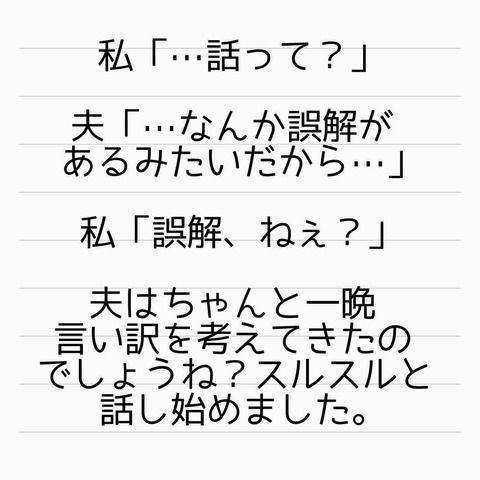 私「…話って？」
夫「…なんか誤解が
あるみたいだから…」
私「誤解、ねぇ？」
夫はちゃんと一晩
言い訳を考えてきたの
でしょうね？スルスルと
話し始めました。